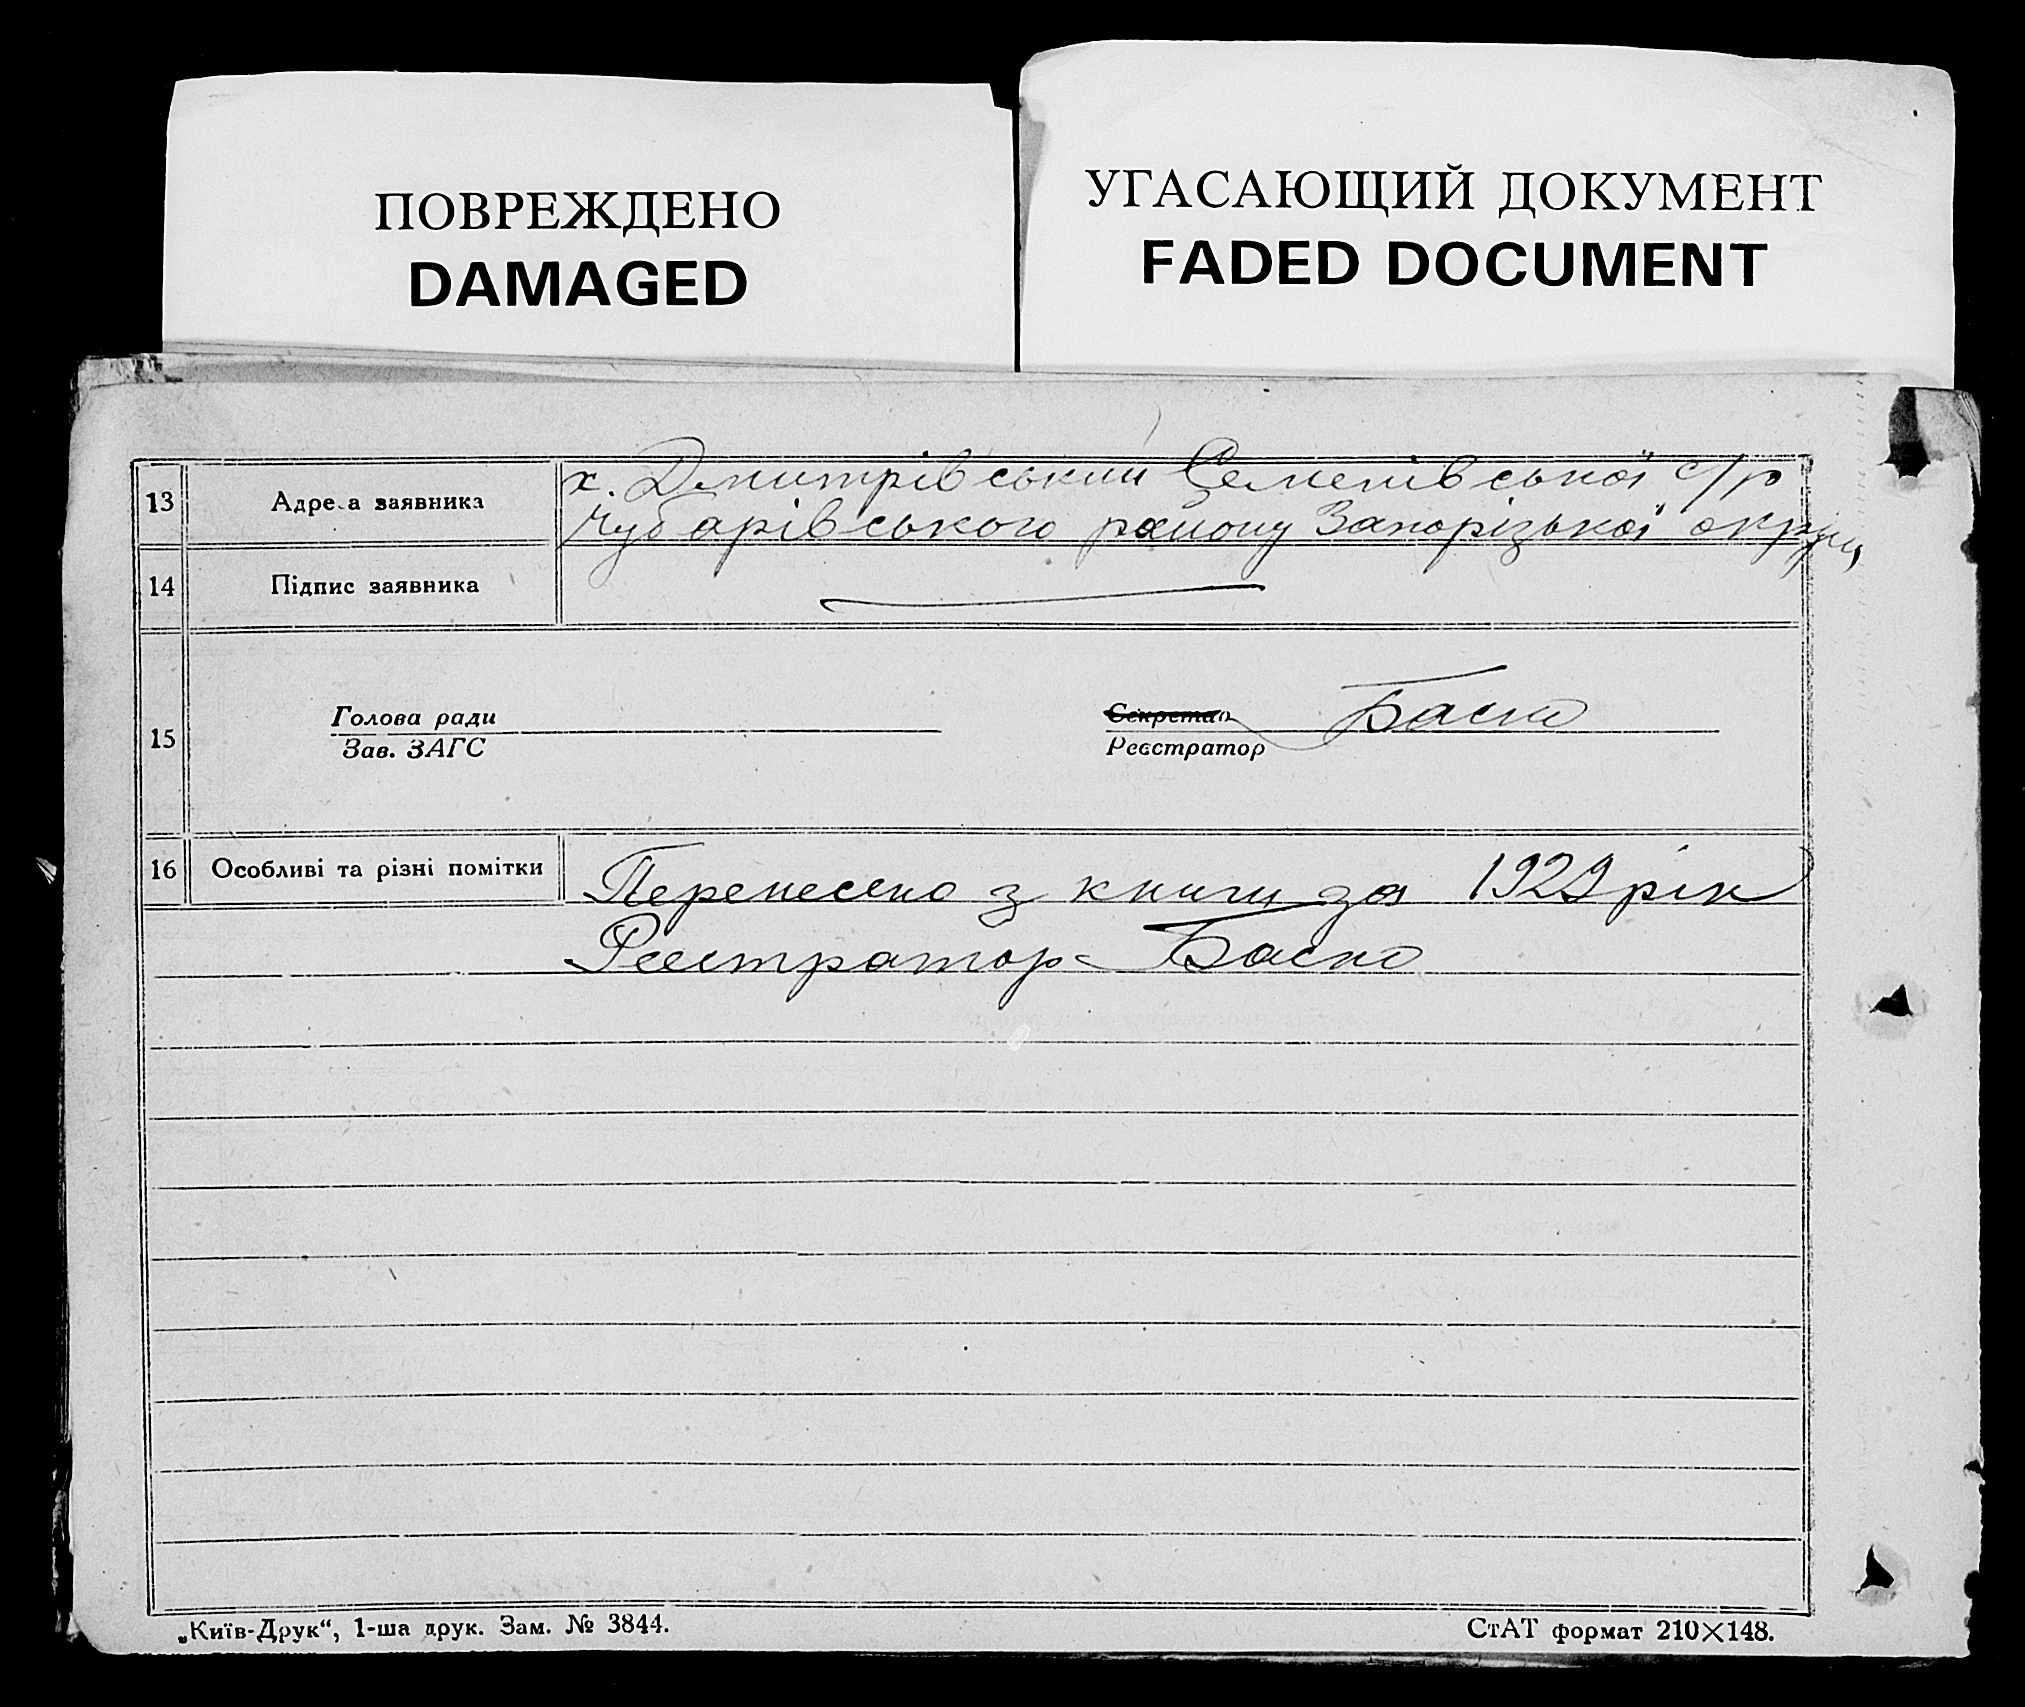 ПОВРЕЖДЕНО
DAMAGED
УГАСАЮЩИЙ ДОКУМЕНТ
FADED DOCUMENT
13 Адреса заявника х. Дмитрівський Семенівської с/р
Чубарівського району Запорізької округи
14 Підпис заявника
15 Голова ради
Зав. ЗАГС
Секретар Баско
Реєстратор
16 Особливі та різні помітки Перенесено з книги за 1929 рік
Реєстратор Баско
„Київ-Друк“, 1-ша друк. Зам. № 3844.
СтАТ формат 210×148.